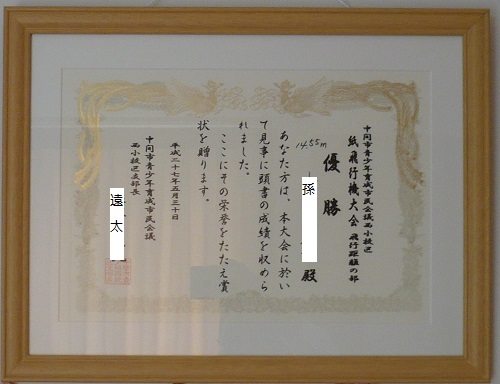 中間市青少年育成市民会議西小校区
紙飛行機大会 飛行距離の部
優勝
14.55m
孫 殿
あなた方は、本大会に於い
て見事に頭書の成績を収めら
れました。
ここにその栄誉をたたえ賞
状を贈ります。
平成二十七年五月三十日
中間市青少年育成市民会議
西小校区支部長
遠太